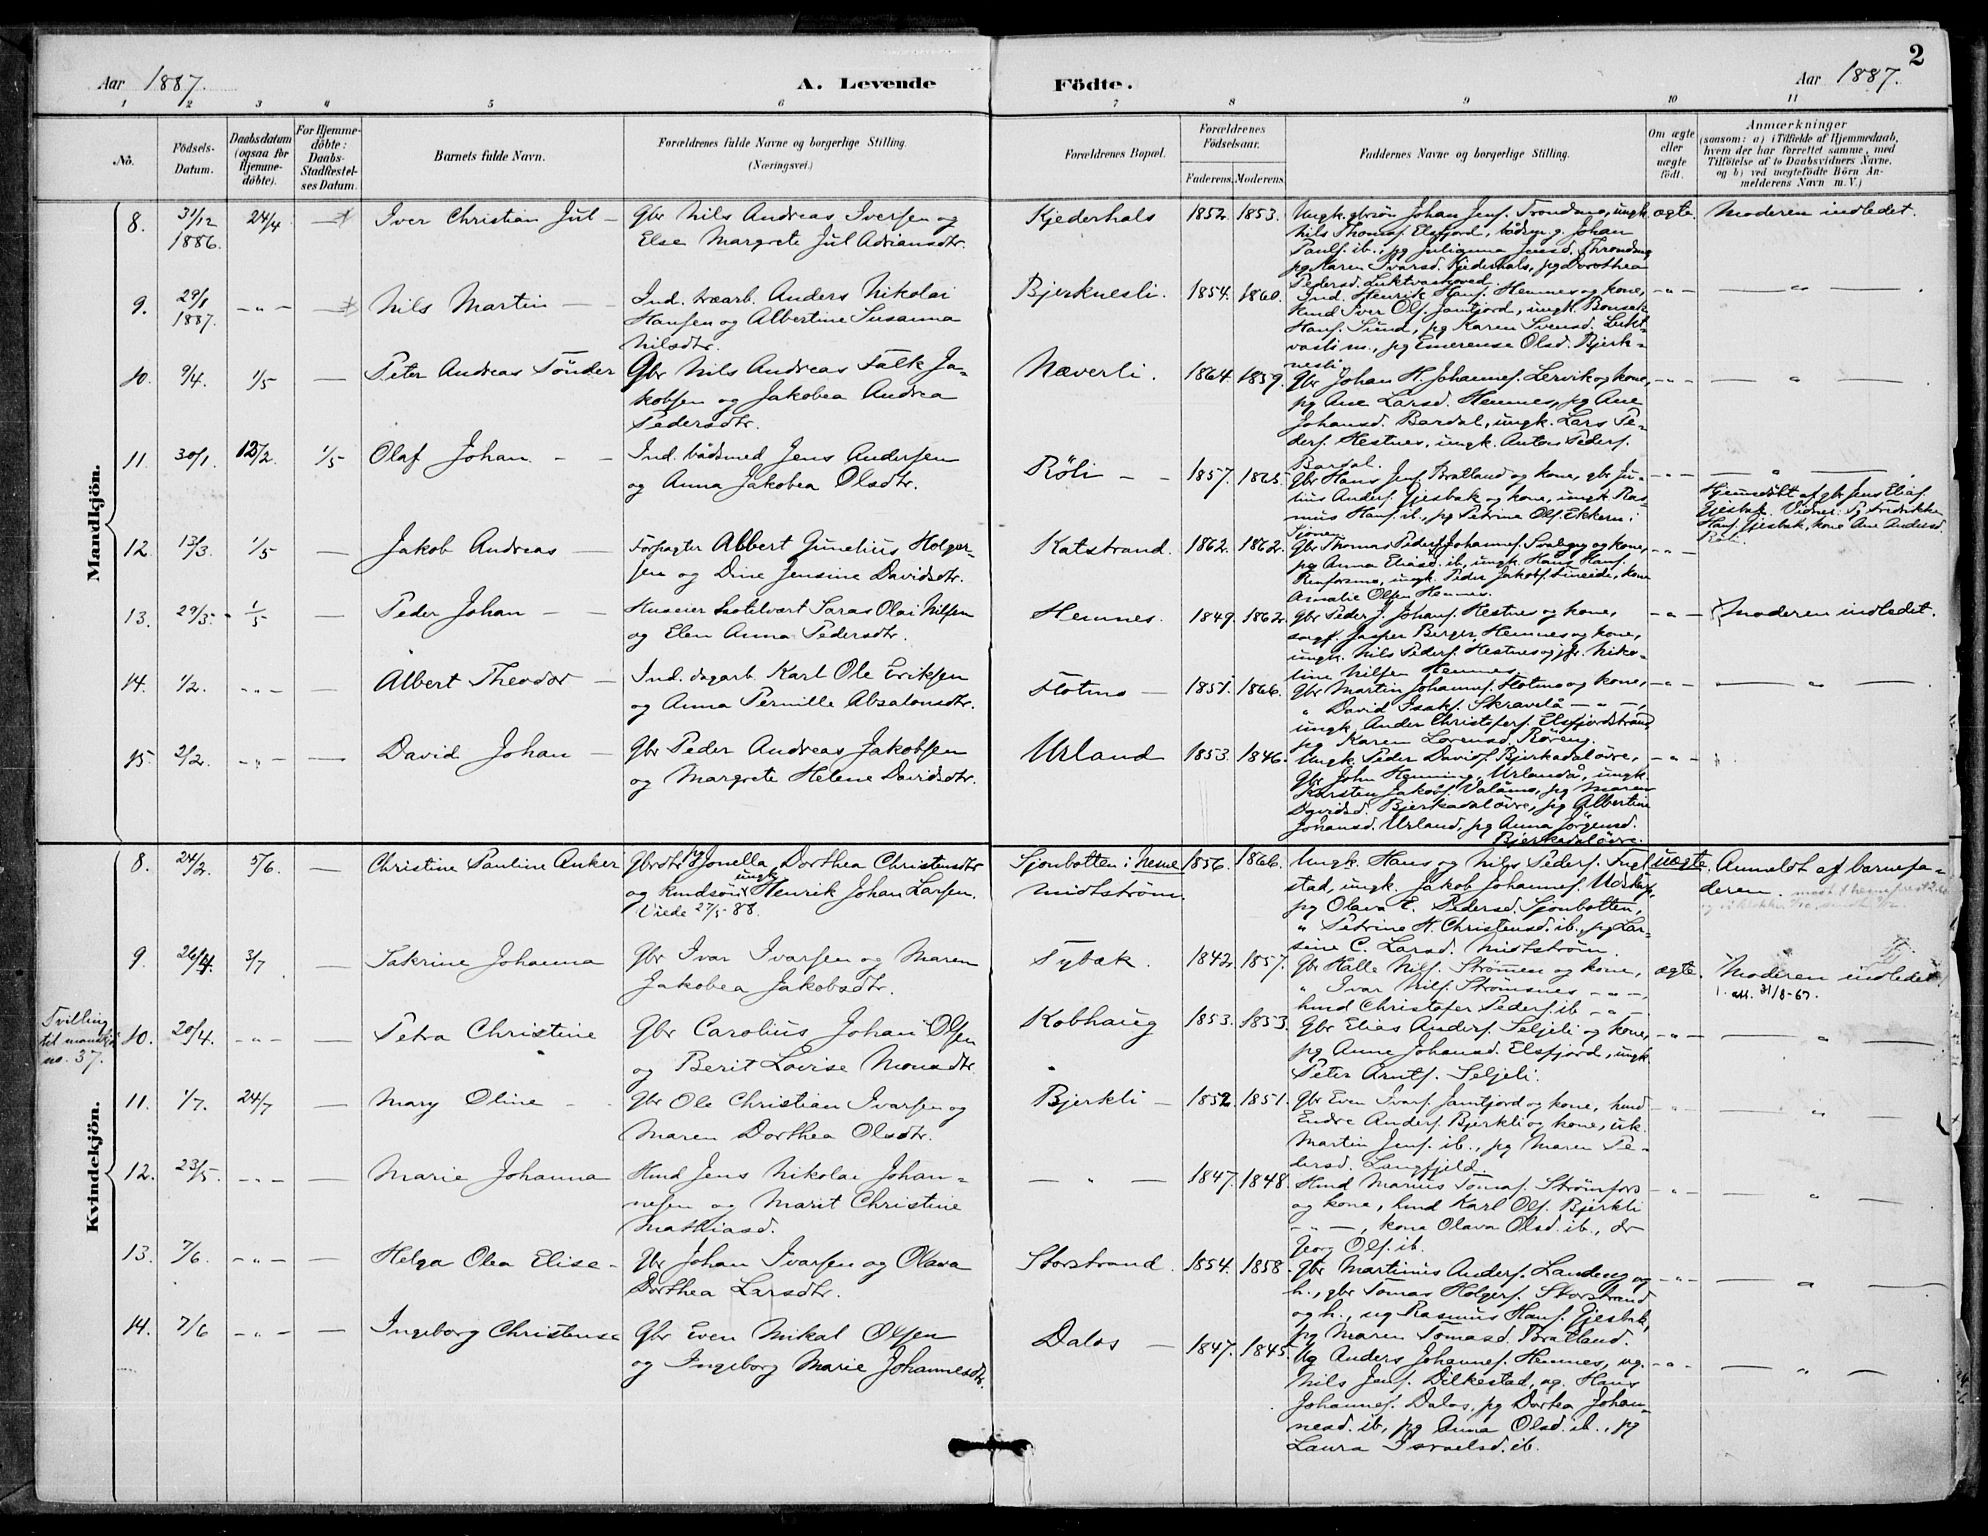 2
Aar 1887. A. Levende Födte. Aar 1887.
1 2 3 4 5 6 7 8 9 10 11
No. Födsels-Datum. Daabsdatum (ogsaa for Hjemme-döbte). For Hjemme-döbte: Daabs-Stadfæstel-ses Datum. Barnets fulde Navn. Forældrenes fulde Navne og borgerlige Stilling. (Næringsvei.) Forældrenes Bopæl. Forældrenes Födselsaar. Faderens. Moderens. Faddernes Navne og borgerlige Stilling. Om ægte eller uægte födt. Anmærkninger
(saasom: a) i Tilfælde af Hjemmedaab, hvem der har forrettet samme, med Tilföielse af to Daabsvidners Navne, og b) ved uægtefödte Börn An-melderens Navn m. V.)
Mandkjön.
8. 31/12 1886. 24/4 — Iver Christian Jul — Gbr Nils Andreas Iversen og
Else Margrete Jul Adriansdtr.
Kjederhals 1852. 1853. Ungk. gbrsön Johan Jens. Trondmo, ungk.
Nils Thomas. Elsfjord, Johan
Pauls. ib., pg Julianna Jensd. Throndmo
pg Karen Ivarsd. Kjederhals, pg Dorothea
Pedersd. Luktvashoved.
ægte. Moderen indledet.
9. 29/1 1887. — " — Nils Martin — Ind. træarb. Anders Nikolai
Hansen og Albertine Susanna
Nilsdtr.
Bjerknesli. 1854. 1860. Ind. Henrik Hans. Hemnes og kone,
Hmd Iver Ols. Jamtjord, ungk.
Hans. Sund, pg Karen Svensd. Lukt-
vasli m., pg Emerense Olsd. Bjerk-
nesli.
— " — — " —
10. 9/4. 1/5 — Peter Andreas Tönder Gbr Nils Andreas Falk Ja-
kobsen og Jakobea Andrea
Pedersdtr.
Næverli. 1864. 1859. Gbr Johan H. Johannes. Lervik og kone,
pg Ane Larsd. Hemnes, pg Ane
Johansd. Bardal, ungk. Lars Pe-
ders. Hestnes, ungk. Anton Peders.
Bardal.
— " — — " —
11. 30/1. 13/2. 1/5 Olaf Johan — Ind. bådsmed Jens Andersen
og Anna Jakobea Olsdtr.
Röli — 1857. 1865. Gbr Hans Jens. Bratland og kone, gbr Ju-
nius Anders. Gjesbak og kone, ungk Ras-
mus Hans. ib., pg Petrine Ols. Ekkern i
Sjonen
— " — — " —
Hjemmedöbt af gbr Jens Elias.
Gjesbak. Vidner: Fredrikke
Hans. Gjesbak, kone Ane Andersd.
Röli.
12. 13/3. 1/5 — Jakob Andreas — Forpagter Albert Gunelius Holger-
sen og Dine Jensine Davidsdtr.
Katstrand. 1862. 1862. Gbr Thomas Peder Johannes. og kone,
pg Anna Eliasd. ib, ungk. Hans Hans.
Renforsmo, ungk. Peder Jakobs. Fineide, kone
Amalie Olsen Hemnes.
— " —
13. 29/3. 1/5 — Peder Johan — Huseier hotelvært Saras Olai Nilsen
og Elen Anna Pedersdtr.
Hemnes. 1849. 1862. Gbr Peder J. Johans. Hestnes og kone,
sagf. Jasper Berger, Hemnes og kone,
ungk. Nils Peders. Hestnes og jfr. Niko-
line Nilsen Hemnes.
— " — Moderen indledet.
14. 1/2. — " — Albert Theodor — Ind. dagarb. Karl Ole Eriksen
og Anna Pernille Absalonsdtr.
Flotmo — 1851. 1866. Gbr Martin Johannes. Flotmo og kone,
" David Isaks. Skravelå — " —,
ungk. Ander Christofers. Elsfjordstrand,
pg Karen Lorensd. Röreng.
— " — — " —
15. 2/2. — " — David Johan — Gbr Peder Andreas Jakobsen
og Margrete Helene Davidsdtr.
Urland 1853. 1846. Ungk. Peder Davids. Bjerkadalöire,
gbr John Henning, Urlandå, ungk.
Karsten Jakobs. Valåmo, pg Maren
Davidsd. Bjerkadalöire, pg Albertine
Johansd. Urland, pg Anna Jörgensd.
Bjerkadalöire.
— " —
Kvindekjön.
8. 24/2. 5/6. — Christine Pauline Anker Gbrdtr pg Jonella Dorthea Christensdtr
og ungk. Henrik Johan Larsen.
Viede 27/5-88.
Sjonbotten i Nesne
Midtström. 1856. 1866. Ungk. Hans og Nils Peders. Ingl-
stad, ungk. Jakob Johannes. Udskarp,
pg Olava E. Pedersd. Sjonbotten,
" Petrine H. Christensd. ib., pg Lar-
sine C. Larsd. Midtström.
uægte. Anmeldt af barnefa-
deren.
9. 26/4. 3/7. — Takrine Johanna Gbr Ivar Ivarsen og Maren
Jakobea Jakobsdtr.
Tybæk. 1842. 1857. Gbr Halle Nils. Strömen og kone,
" Ivar Nils. Strömsnes — " —,
hmd Christofer Peders. ib — " —
ægte. Moderen indledet
1. att. 31/8-67.
Tvilling
til mandkj.
no. 37.
10. 20/4. — " — Petra Christine Gbr Carolius Johan Olsen
og Berit Lovise Monsdtr.
Kobhaug 1853. 1853. Gbr Elias Anders. Seljeli og kone,
pg Anne Johansd. Elsfjord, ungk.
Peter Arnts. Seljeli.
— " — — " —
11. 1/7. 24/7 — Mary Oline — Gbr Ole Christian Ivarsen og
Maren Dorthea Olsdtr.
Bjerkli — 1852. 1851. Gbr Even Ivars. Jamtjord og kone, hmd
Endre Anders. Bjerkli og kone, uk.
Martin Jens. ib., pg Maren Pe-
dersd. Langfjeld.
— " — — " —
12. 23/5. — " — Marie Johanna Hmd Jens Nikolai Johan-
nesen og Marit Christine
Mathiasd.
— " — 1847. 1848. Hmd Marius Tomas. Strömfors
og kone, hmd Karl Ols. Bjerkli
— " —, kone Olava Olsd. ib., dr
Georg Ols. ib.
— " — — " —
13. 7/6. — " — Helga Olea Elise — Gbr Johan Ivarsen og Olava
Dorthea Larsdtr.
Storstrand. 1854. 1858. Gbr Martinus Anders. Landeng og
h., gbr Tomas Holgers. Storstrand
og h., ug Rasmus Hans. Gjesbak,
pg Maren Tomasd. Bratland.
— " — — " —
14. 7/6 — " — Ingeborg Christense Gbr Even Mikal Olsen
og Ingeborg Marie Johannesdtr.
Dalos — 1847. 1845. Ug Anders Johannes. Hemnes, ug.
Nils Jens. Dilkestad, ug. Hans
Johannes. Dalos, pg Dortea Johan-
nesd. ib, pg Anna Olsd. ib., pg
Laura Israelsd. ib.
— " — — " —